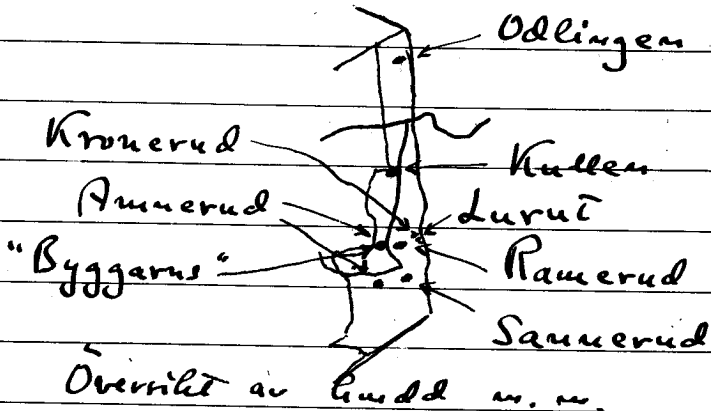 Odlingen
Kronerud
Kullen
Annerud
Lurut
"Byggarns"
Ramerud
Sannerud
Översikt av hmdd m. m.